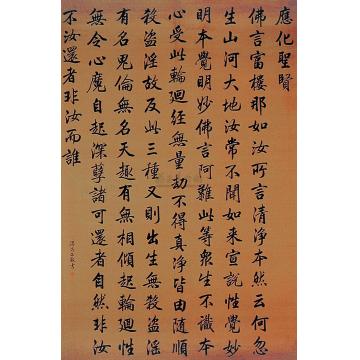 應化聖賢
佛言富樓那如汝所言清淨本然云何忽
生山河大地汝常不聞如來宣說性覺妙
明本覺明妙佛言阿難此等衆生不識本
心受此輪迴經無量劫不得真淨皆由隨順
殺盜淫故反此三種又則出生無殺盜淫
有名鬼倫無名天趣有無相傾起輪迴性
無令心魔自起深孽諸可還者自然非汝
不汝還者非汝而誰